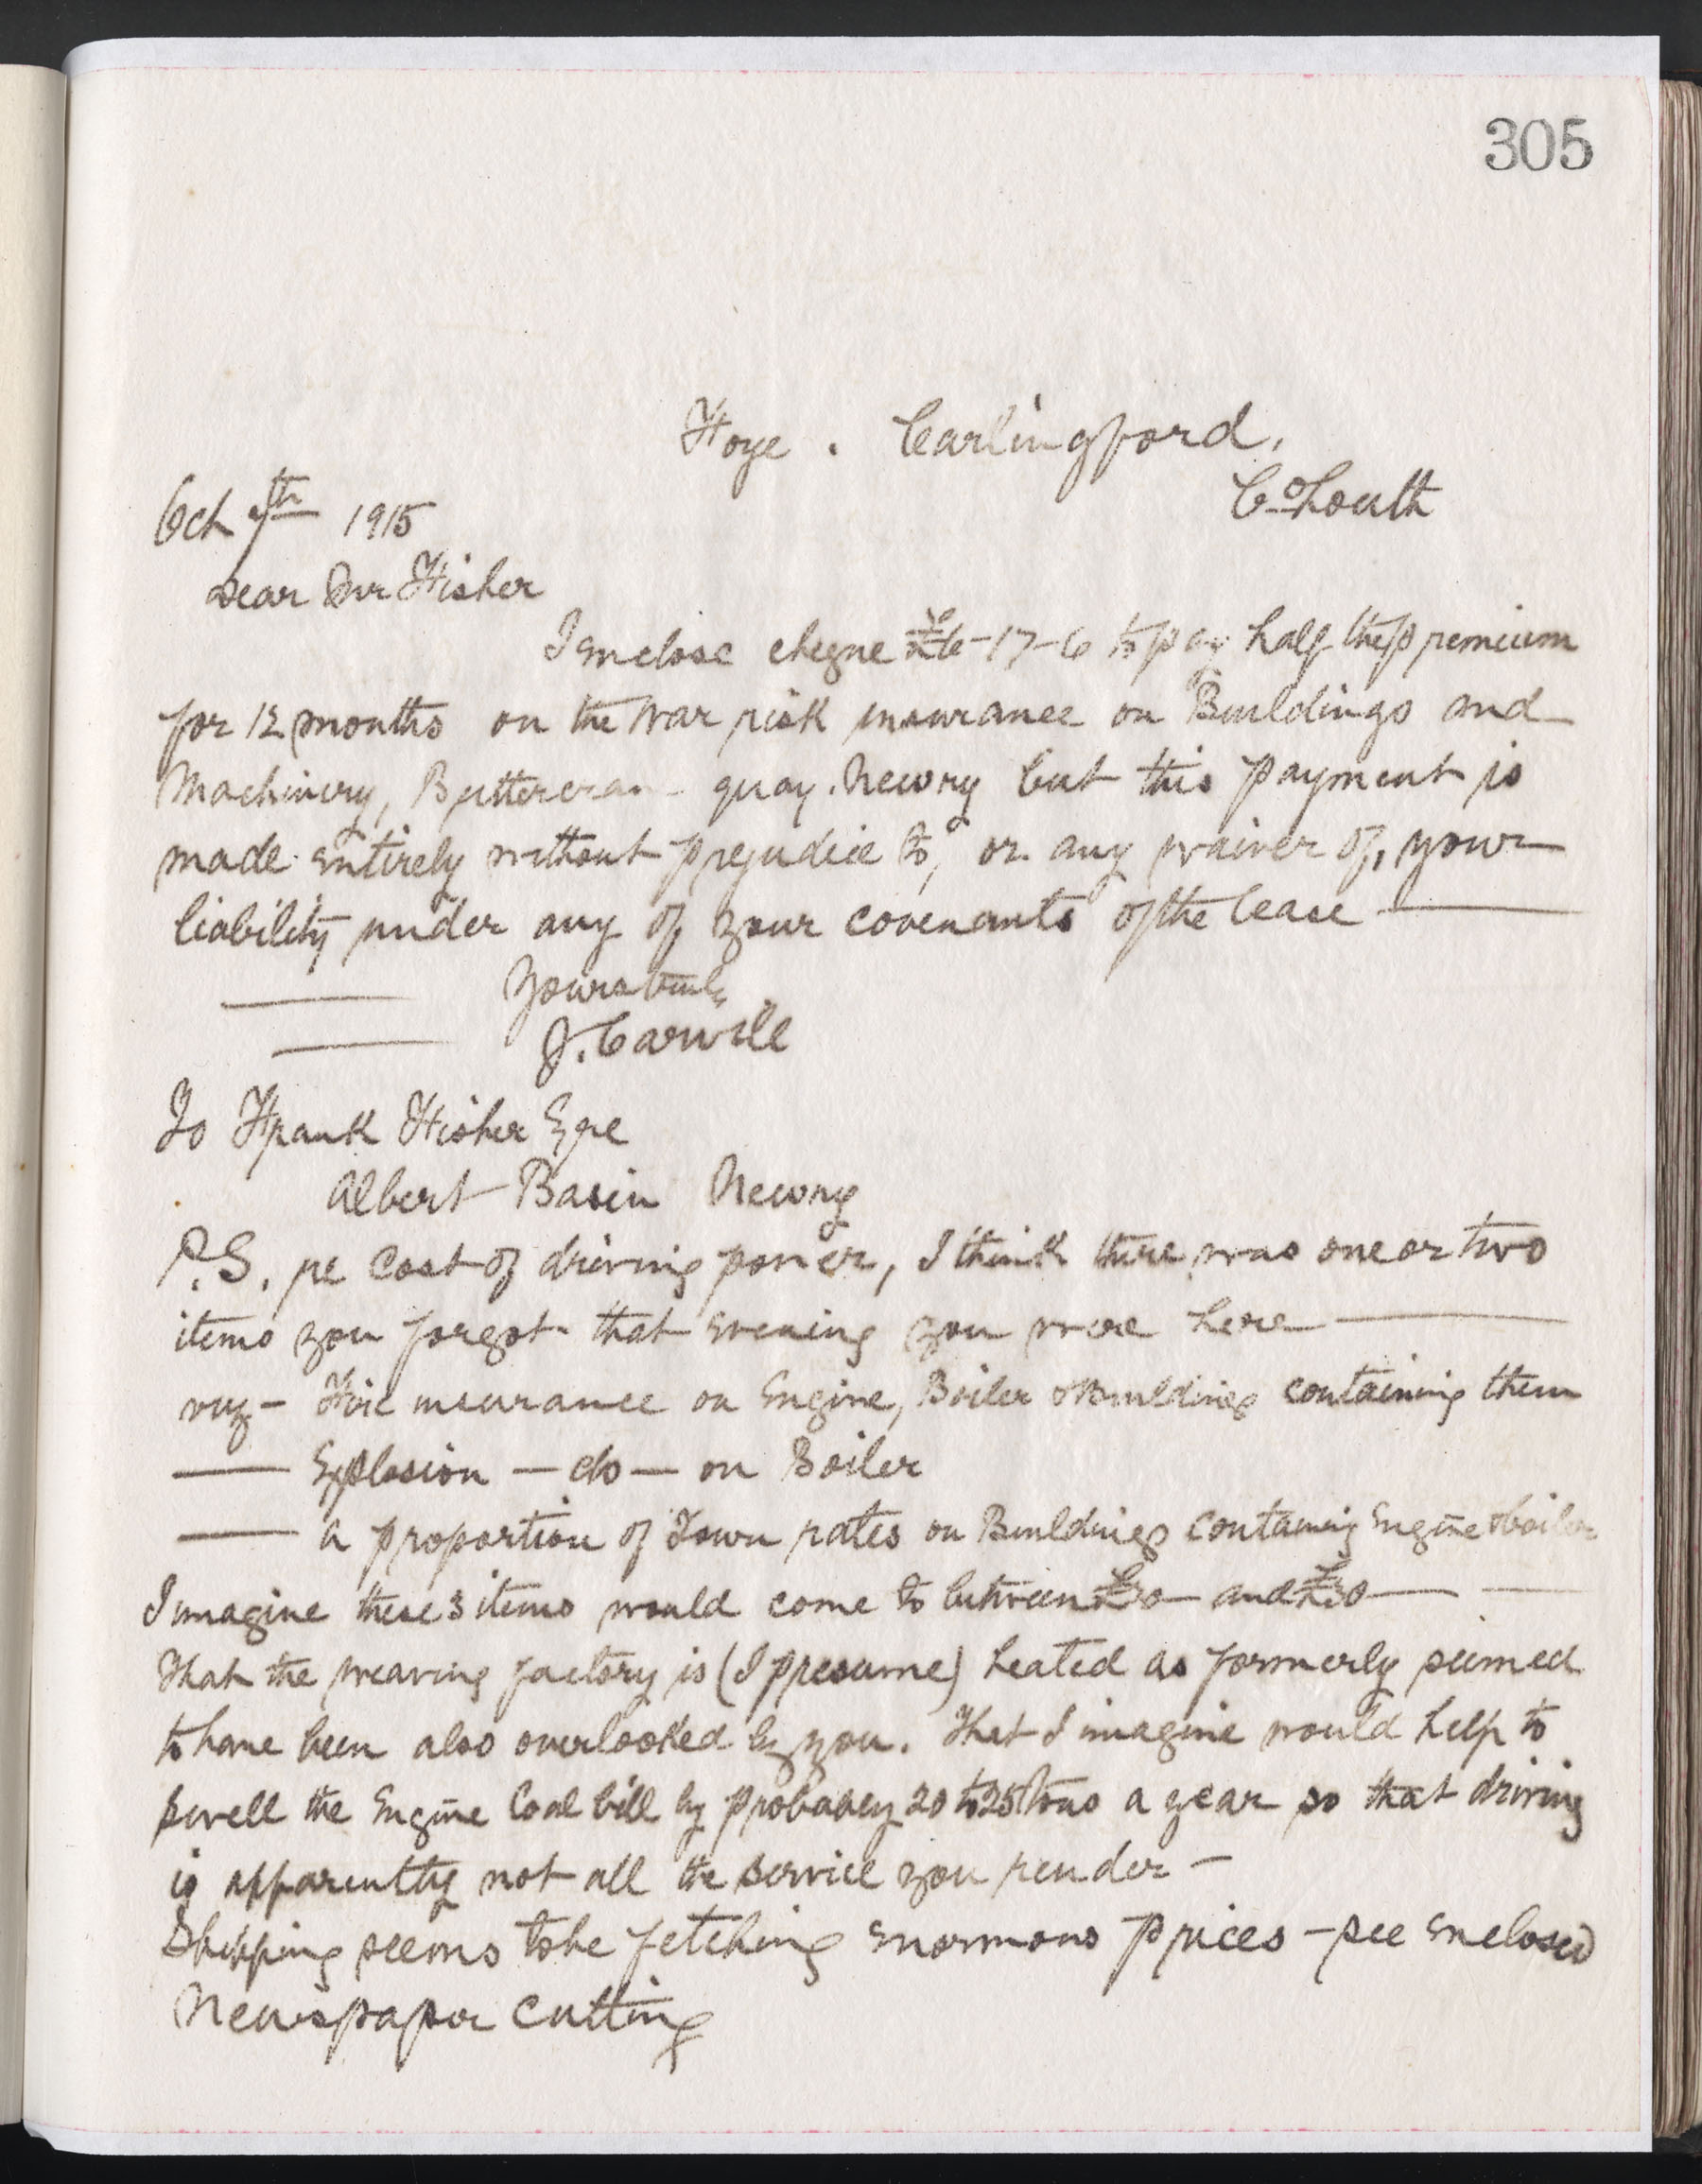 305
Foye . Carlingford.
Co Louth
Oct 7th 1915
Dear Mr Fisher
I enclose cheque £6-17-6 to pay half the premium
for 12 months on the War risk insurance on Buildings and
Machinery, Buttercran quay. Newry but this payment is
made entirely without prejudice to, or any waiver of, your
liability under any of your covenants of the lease —
— Yours truly
— J. Carvill
To Frank Fisher Eqre
Albert Basin Newry
P.S. re Cost of driving power, I think there was one or two
items you forgot that evening you were here —
viz - Fire insurance on Engine, Boiler & Buildings containing them
— Explosion — do — on Boiler
— a proportion of Town rates on Buildings containing Engine & boiler
I imagine these 3 items would come to between and — —
That the weaving factory is (I presume) heated as formerly seemed
to have been also overlooked by you. That I imagine would help to
swell the Engine Coal bill by probably 20 to 25 Tons a year so that driving
is apparently not all the service you render -
Shipping seems to be fetching enormous prices - see enclosed
Newspaper cutting